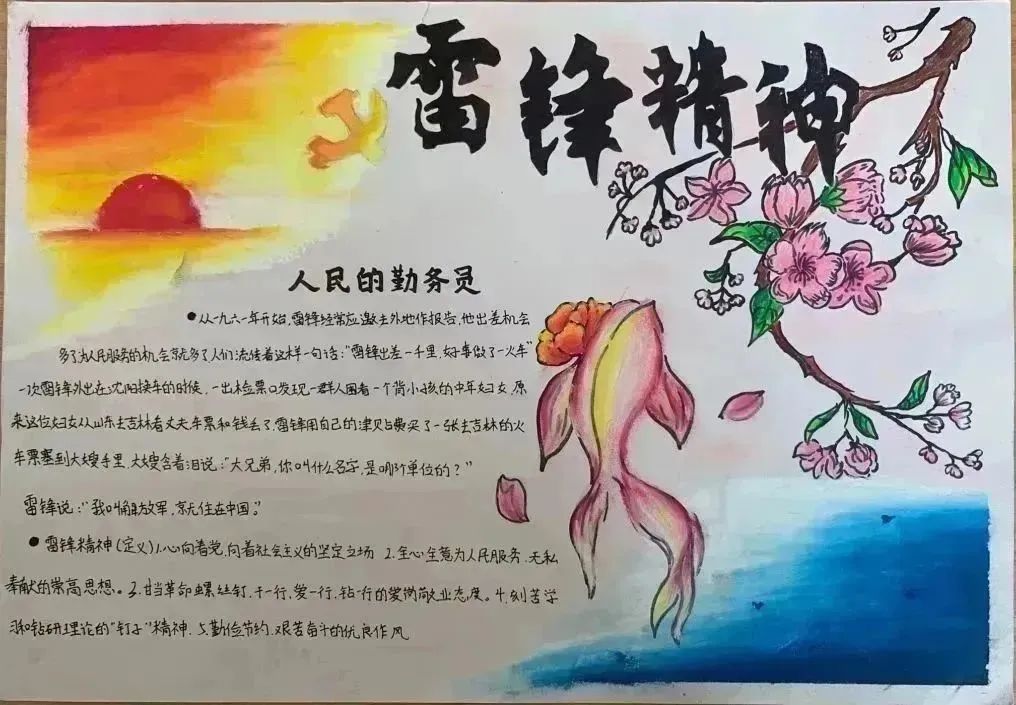 雷锋精神
人民的勤务员
●从一九六一年开始,雷锋经常应邀去外地作报告,他出差机会
多了为人民服务的机会就多了人们流传着这样一句话:"雷锋出差一千里,好事做了一火车"
一次雷锋外出在沈阳换车的时候,一出检票口发现一群人围着一个背小孩的中年妇女,原
来这位妇女从山东去吉林看丈夫车票和钱丢了雷锋用自己的津贴费买了一张去吉林的火
车票塞到大嫂手里,大嫂含着泪说:"大兄弟,你叫什么名字,是哪个单位的?"
雷锋说:"我叫解放军,家住在中国。"
●雷锋精神(定义)1.心向着党,向着社会主义的坚定立场 2.全心全意为人民服务.无私
奉献的崇高思想。3.甘当革命螺丝钉,干一行,爱一行,钻一行的爱岗敬业态度。4.刻苦学
习和钻研理论的"钉子"精神.5.勤俭节约.艰苦奋斗的优良作风